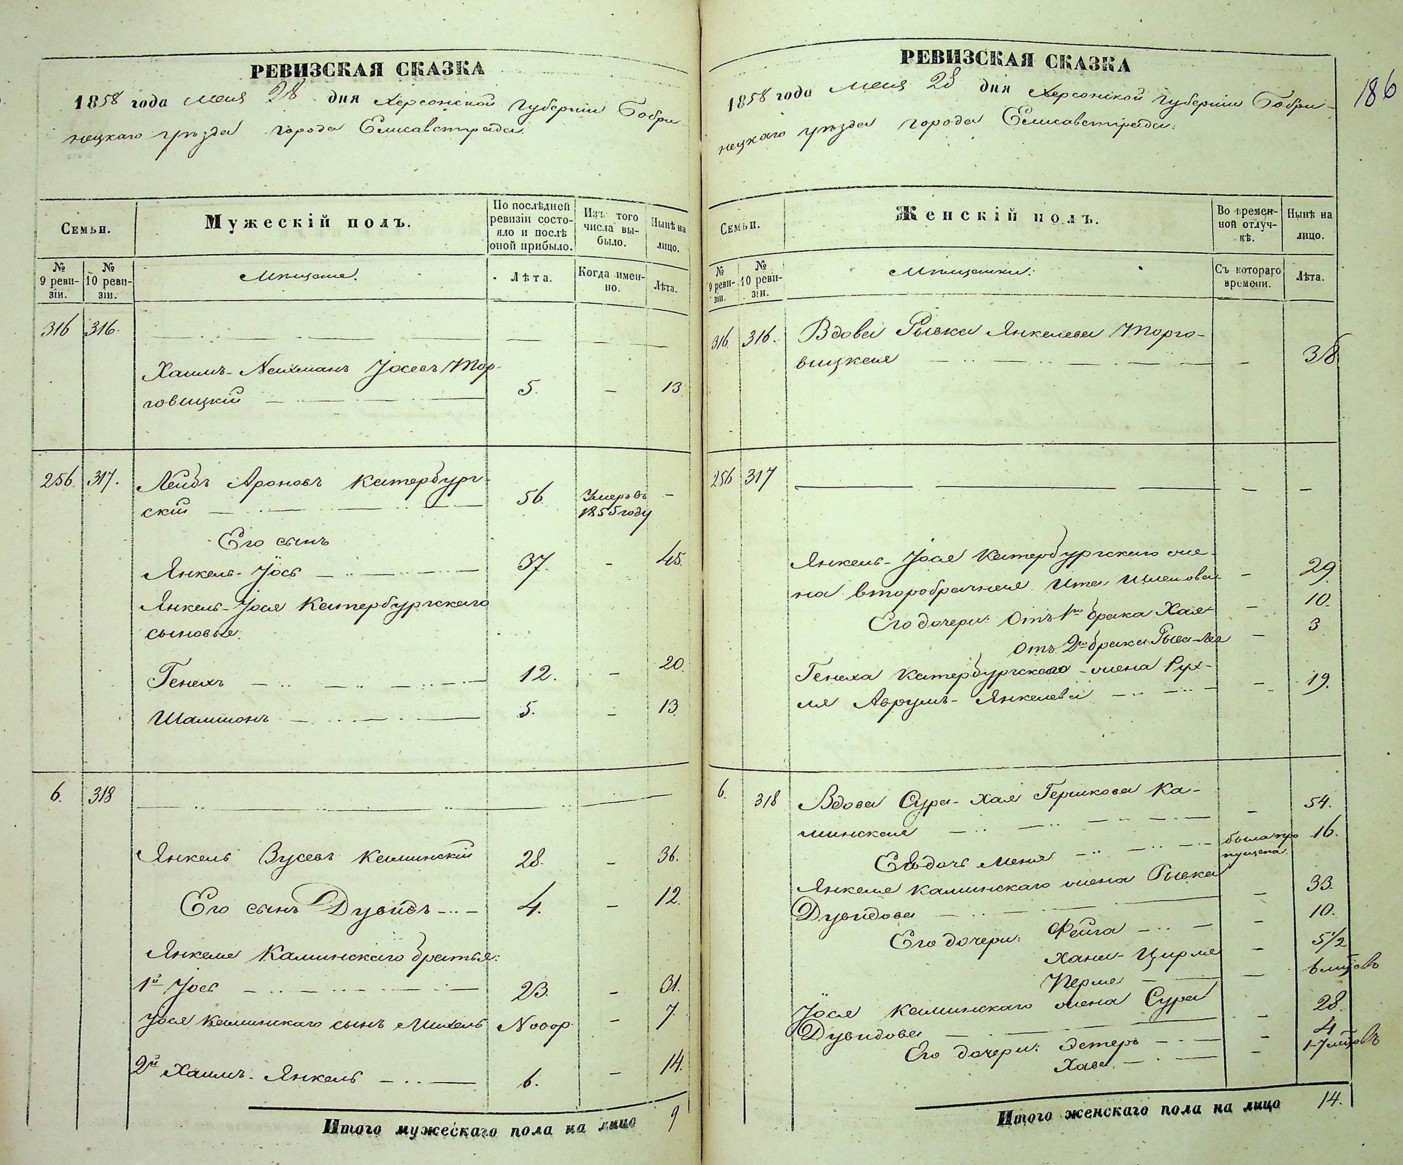 РЕВИЗСКАЯ СКАЗКА
1858 года мая 28 дня Херсонской губернии Бобри
нецкаго уѣзда города Елисаветграда.
Семьи.
Мужескій полъ.
По послѣдней ревизіи состояло и послѣ оной прибыло.
Изъ того числа выбыло.
Нынѣ на лицо.
№ 9 ревизіи.
№ 10 ревизіи.
Мѣщане.
Лѣта.
Когда именно.
Лѣта.
316 316.
Хаимъ-Нехманъ Іосевъ Тор-
говицкій 5. — 13
256 317. Лейбъ Ароновъ Катербург-
скій 56 Умеръ въ 1855 году —
Его сынъ
Янкель-Іось 37. — 45.
Янкель-Іося Катербургскаго
сыновья:
Генехъ 12. — 20.
Шлиомъ 5. — 13.
6. 318
Янкель Вусевъ Каминскій 28. — 36.
Его сынъ Дувидъ 4. — 12.
Янкеля Каминскаго братья:
1й Іось 23. — 31.
Іося Каминскаго сынъ Михель Новор. — 7.
2й Хаимъ-Янкель 6. — 14.
Итого мужескаго пола на лицо 9
186
РЕВИЗСКАЯ СКАЗКА
1858 года мая 28 дня Херсонской губернии Бобри-
нецкаго уѣзда города Елисаветграда.
Семьи.
Женскій полъ.
Во временной отлучкѣ.
Нынѣ на лицо.
№ 9 ревизіи.
№ 10 ревизіи.
Мѣщанки:
Съ котораго времени.
Лѣта.
316. 316. Вдова Рывка Янкелева Торго-
вицкая — 38
256 317 — —
Янкель-Іося Катербургскаго же-
на второбрачная Ита — 29
Его дочери: Отъ 1го брака Хая — 10.
Отъ 2го брака Рыва-Лея — 3
Генеха Катербургскаго жена Рух-
ля Аврумъ-Янкелева — 19.
6. 318 Вдова Сура-Хая Гершкова Ка-
минская — 54.
Ея дочь Меня была пропущена 16.
Янкеля Каминскаго жена Рывка
Дувидова — 33.
Его дочери: Фейга — 10.
Хана-Цирля — 5 1/2
Перля — 6 мѣсяцовъ
Іося Каминскаго жена Сура
Дувидова — 28.
Его дочери: Эстеръ — 4
Хава — 1-7 мѣсяцовъ
Итого женскаго пола на лицо 14.